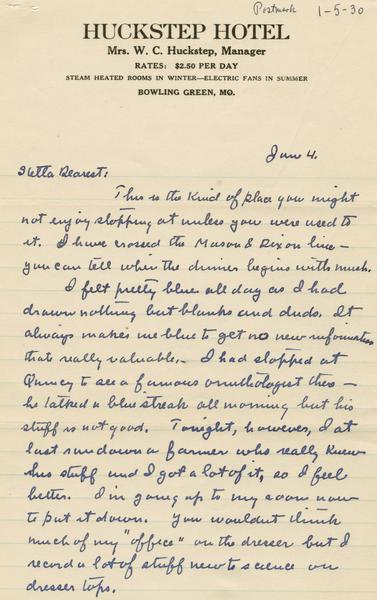 Postmark 1-5-30
HUCKSTEP HOTEL
Mrs. W. C. Huckstep, Manager
RATES: $2.50 PER DAY
STEAM HEATED ROOMS IN WINTER—ELECTRIC FANS IN SUMMER
BOWLING GREEN, MO.
Jan 4.
Stella Dearest:
This is the kind of place you might
not enjoy stopping at unless you were used to
it. I have crossed the Mason & Dixon line —
you can tell when the dinner begins with mush.
I felt pretty blue all day as I had
drawn nothing but blanks and duds. It
always makes me blue to get no new information
thats really valuable. — I had stopped at
Quincy to see a famous ornithologist there —
he talked a blue streak all morning but his
stuff is not good. Tonight, however, I at
last run down a farmer who really knew
his stuff and I got a lot of it, so I feel
better. I'm going up to my room now
to put it down. You wouldnt think
much of my "office" on the dresser but I
record a lot of stuff new to science on
dresser tops.